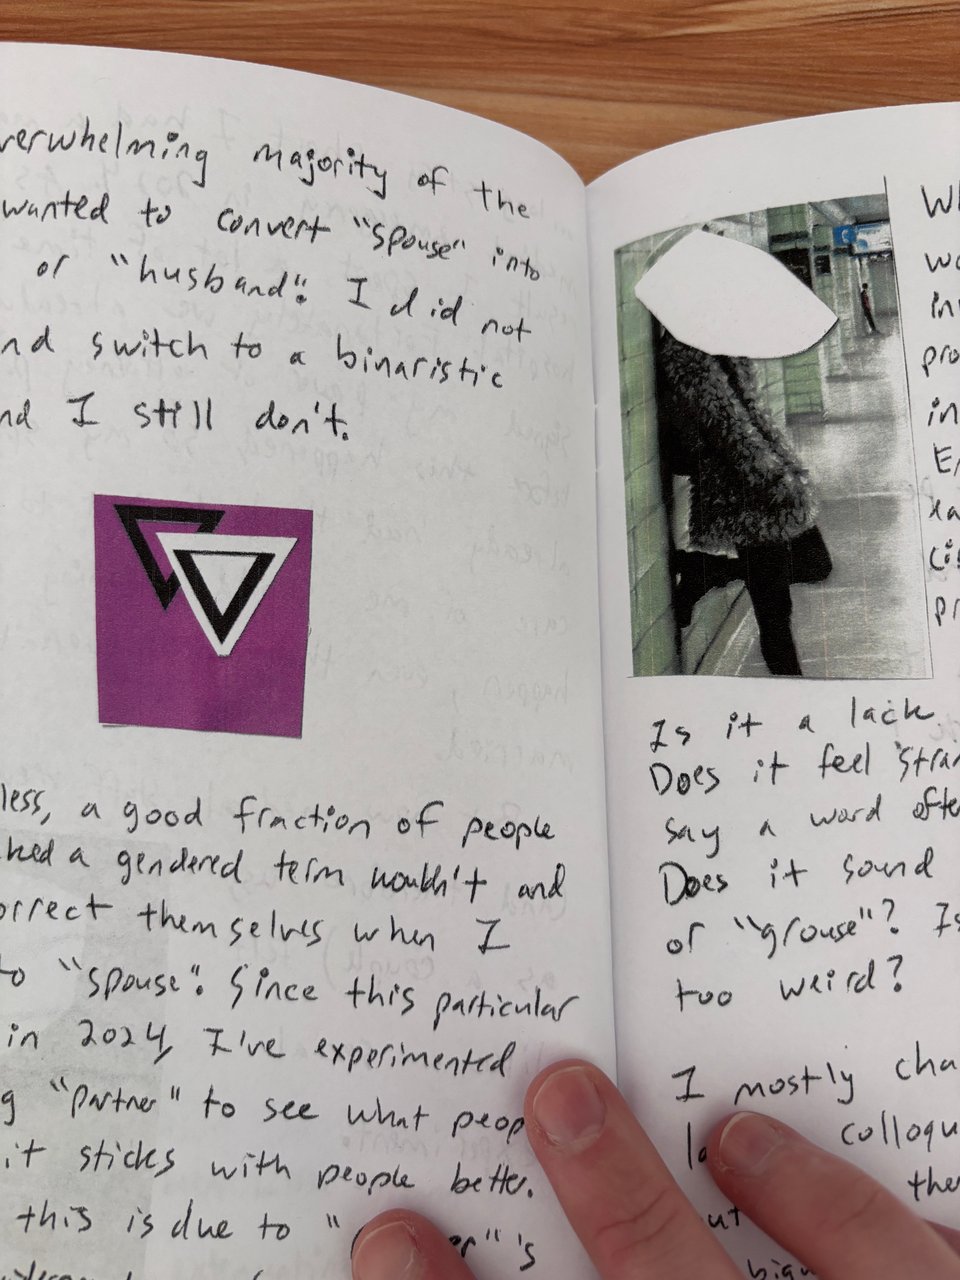 verwhelming majority of the
wanted to convert "spouse" into
or "husband". I did not
nd switch to a binaristic
nd I still don't.
less, a good fraction of people
ked a gendered term wouldn't and
orrect themselves when I
to "spouse". Since this particular
in 2024, I've experimented
g "partner" to see what peop
it sticks with people better.
this is due to "    er"'s
Wh
wo
inv
pro
in
En
ra
cis
pr
Is it a lack
Does it feel stran
say a word ofte
Does it sound
or "grouse"? Is
too weird?
I mostly cha
colloqu
the
ut